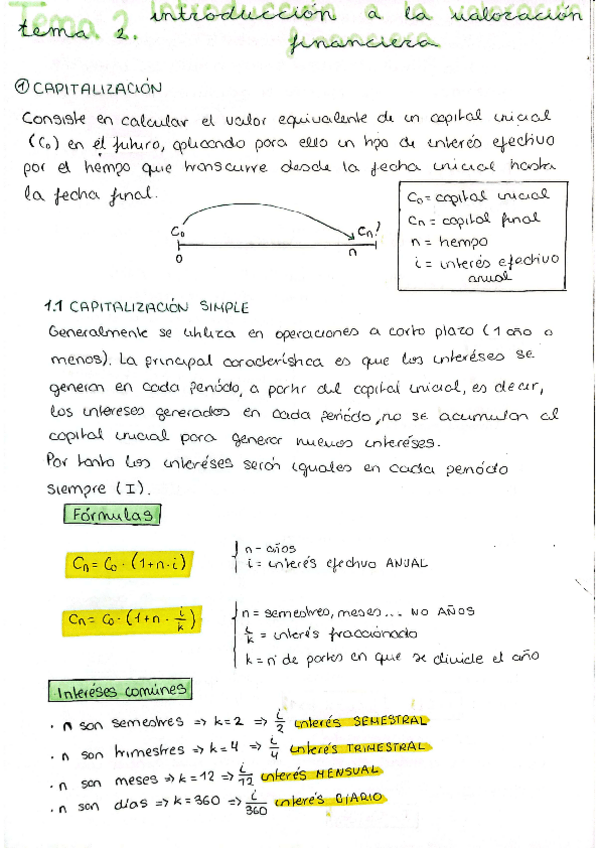 tema 2. introducción a la valoración
financiera
① CAPITALIZACIÓN
Consiste en calcular el valor equivalente de un capital inicial
(C₀) en el futuro, aplicando para ello un tipo de interés efectivo
por el tiempo que transcurre desde la fecha inicial hasta
la fecha final.
C₀ Cn?
0 n
C₀ = capital inicial
Cn = capital final
n = tiempo
i = interés efectivo
anual
1.1 CAPITALIZACIÓN SIMPLE
Generalmente se utiliza en operaciones a corto plazo (1 año o
menos). La principal característica es que los interéses se
generan en cada período, a partir del capital inicial, es decir,
los intereses generados en cada período, no se acumulan al
capital inicial para generar nuevos interéses.
Por tanto los interéses serán iguales en cada período
siempre (I).
Fórmulas
Cn = C₀ · (1+n·i)
n - años
i = interés efectivo ANUAL
Cn = C₀ · (1+n · i/k)
n = semestres, meses... NO AÑOS
i/k = interés fraccionado
k = nº de partes en que se divide el año
Interéses comúnes
· n son semestres => k=2 => i/2 interés SEMESTRAL
· n son trimestres => k=4 => i/4 interés TRIMESTRAL
· n son meses => k=12 => i/12 interés MENSUAL
· n son días => k=360 => i/360 interés DIARIO